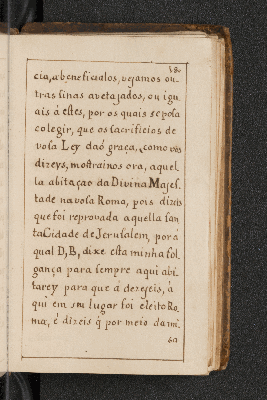 58.
cia, abeneficalos, vejamos ou-
tras sinas avetajados, ou igu
ais á estes, por os quais se possa
colegir, que os sacrificios de
vosa Ley daó graça, como vos
dizeys, mostrainos ora, aquel
la abitaçao da Divina Majes.
tade na vosa Roma, pois dizeis
que foi reprovada aquella san
ta Cidade de Jerusalem, por á
qual D, B, dixe esta minha fol
gança para sempre aqui abi
tarey para que á dezejeis, á
qui em seu lugar foi eleito Ro
ma, é dizeis q̃ por meio da mi
sa